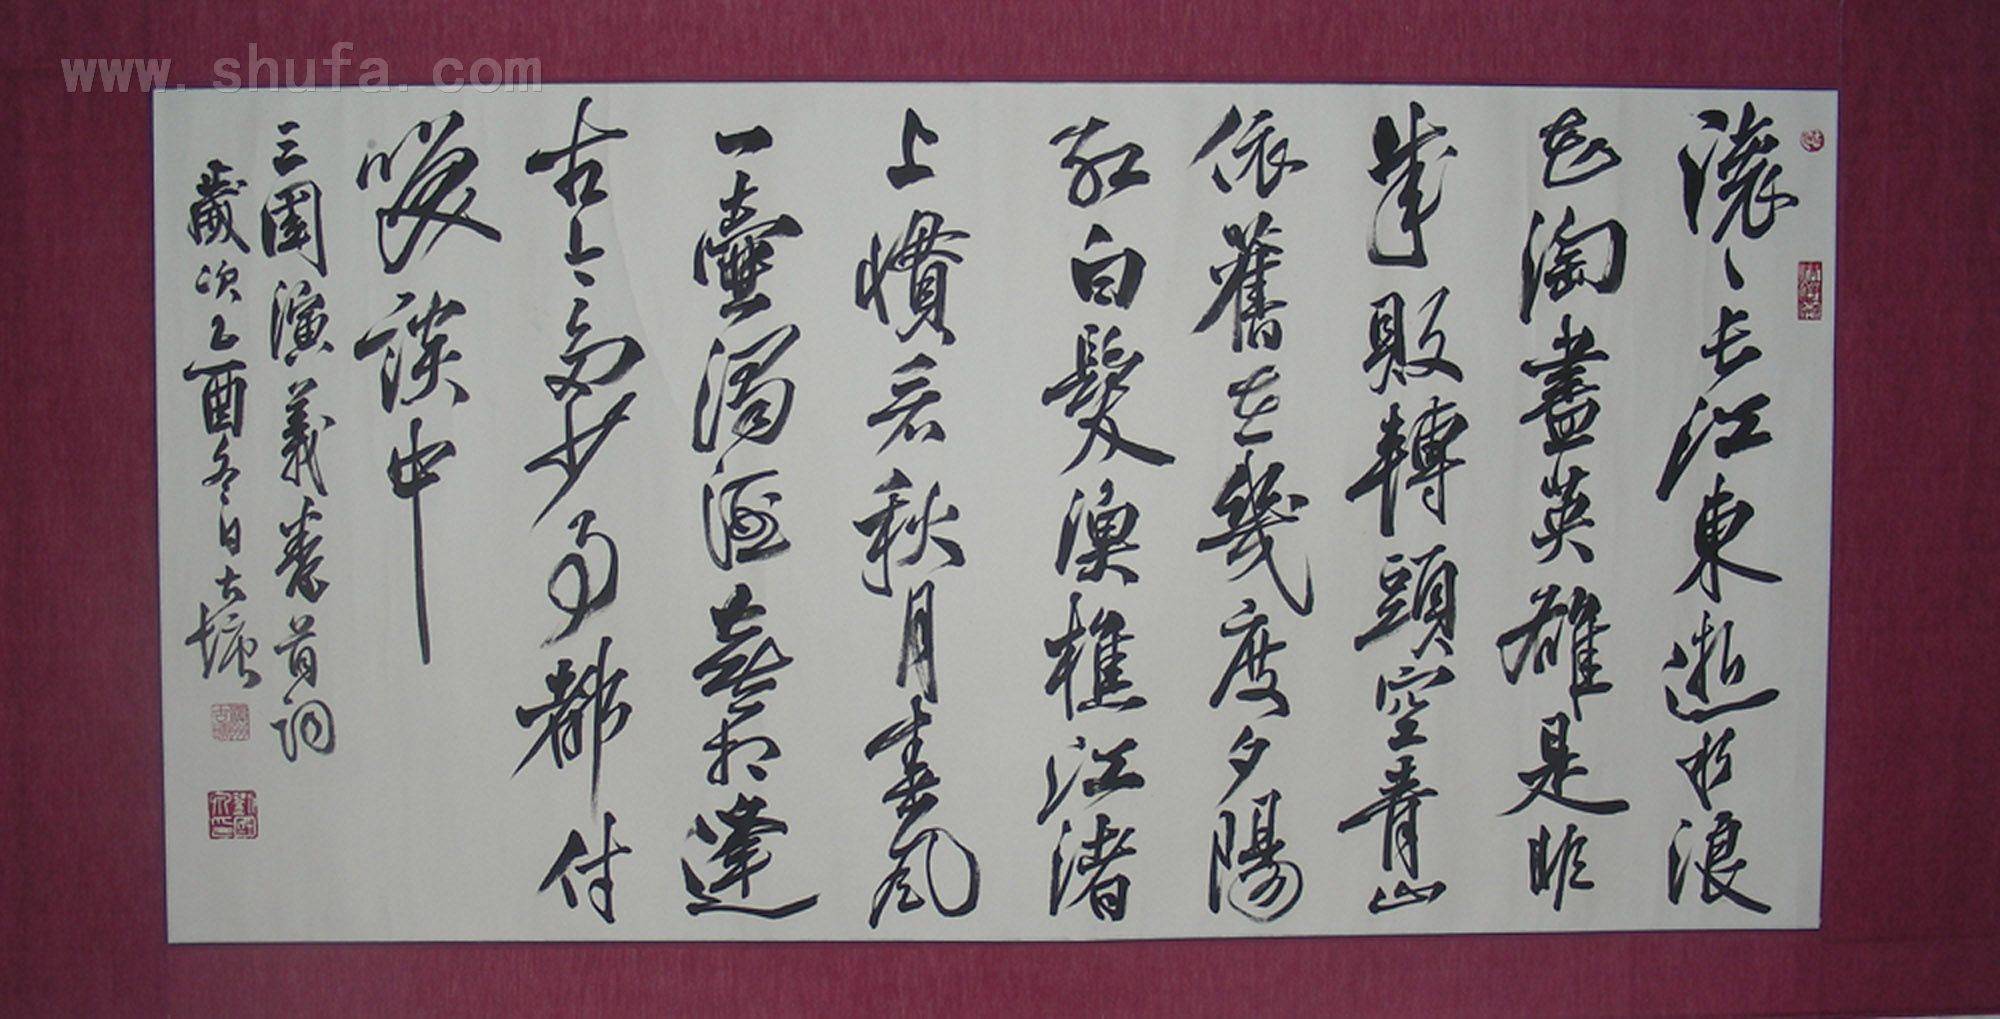 www.shufa.com
滚〻長江東逝水浪
花淘盡英雄是非
成敗轉頭空青山
依舊在幾度夕陽
紅白髮漁樵江渚
上慣看秋月春風
一壺濁酒喜相逢
古今多少事都付
咲談中
三國演義卷首詞
歲次乙酉冬日大